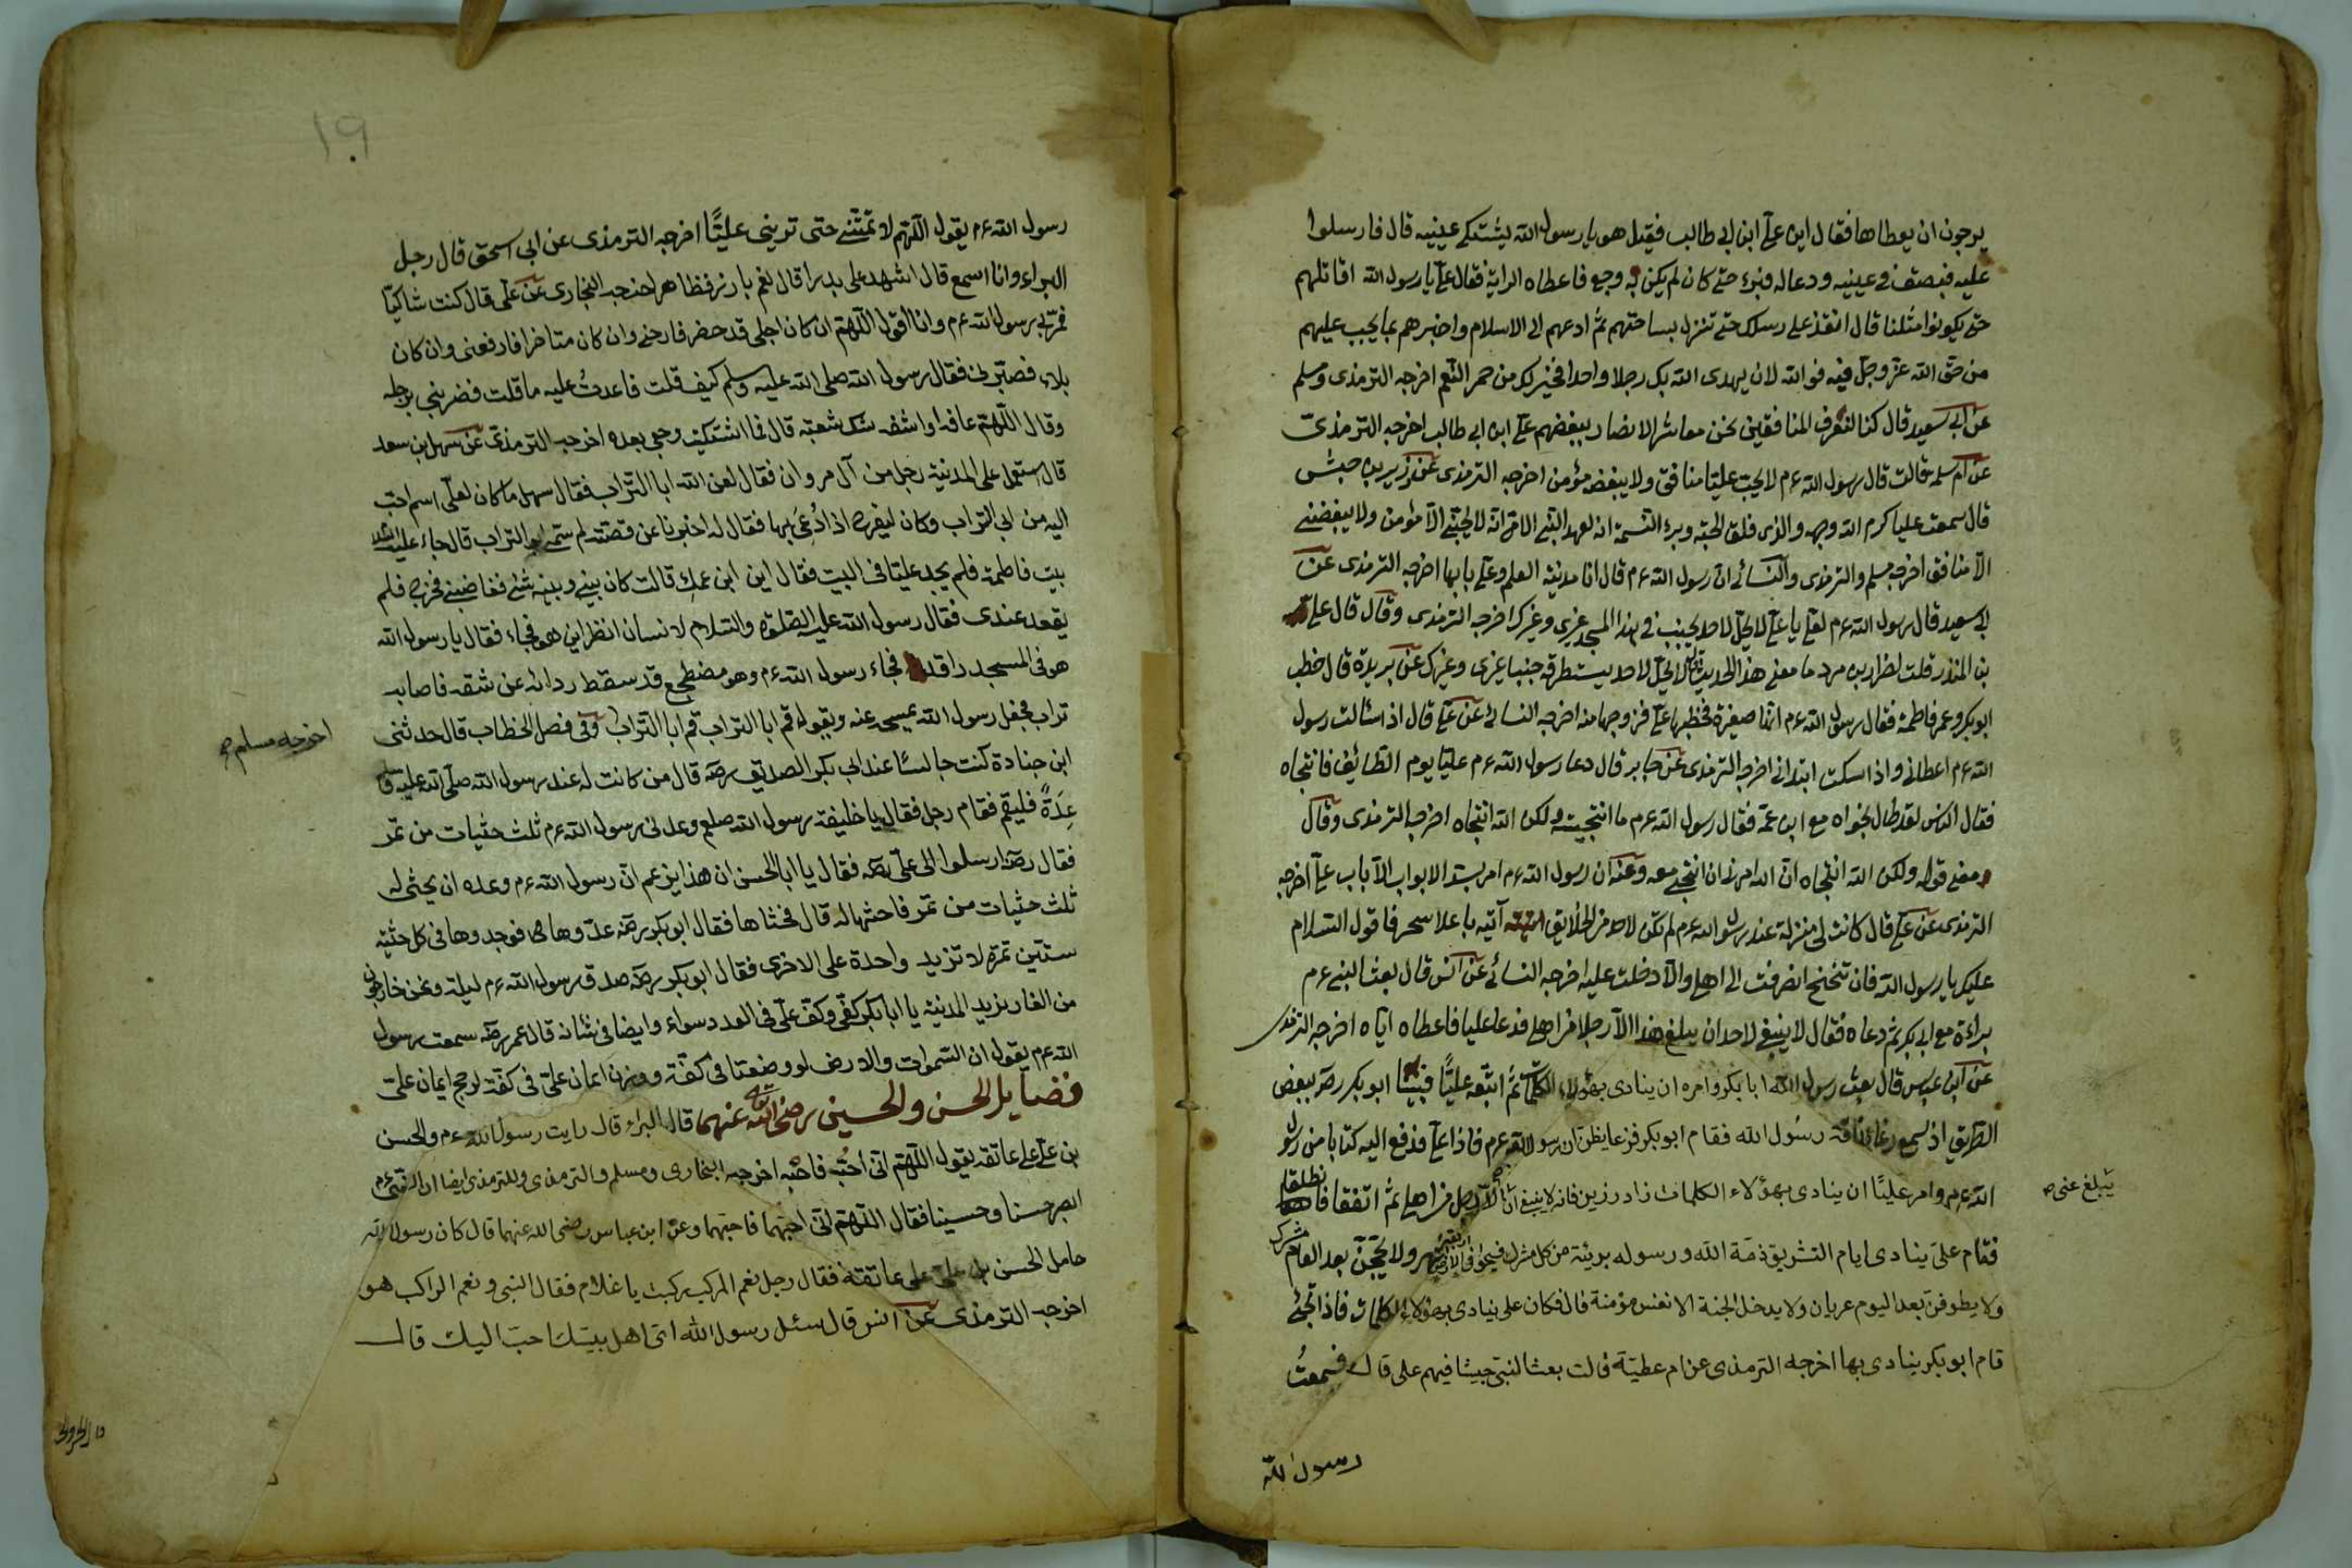 يرجون ان يعطاها فقال اين علي ابن ابي طالب فقيل هو يا رسول الله يشتكي عينيه قال فارسلوا
عليه فبصق في عينيه ودعا له فبرء حتى كان لم يكن به وجع فاعطاه الراية فقال علي يا رسول الله اقاتلهم
حتى يكونوا مثلنا قال انفذ على رسلك حتى تنزل بساحتهم ثم ادعهم الى الاسلام واخبرهم بما يجب عليهم
من حق الله عز وجل فيه فوالله لان يهدى الله بك رجلا واحدا خير لك من حمر النعم اخرجه الترمذى ومسلم
عن ابي سعيد قال كنا لنعرف المنافقين نحن معاشر الانصار ببغضهم علي ابن ابي طالب اخرجه الترمذي
عن ام سلمة قالت قال رسول الله ءم لا يحب عليا منافق ولا يبغضه مؤمن اخرجه الترمذى عن زر بن حبيش
قال سمعت عليا كرم الله وجهه والذى فلق الحبة وبرء النسمة انه لعهد النبي الامي انه لا يحبني الا مؤمن ولا يبغضني
الا منافق اخرجه مسلم والترمذى والنسائي ان رسول الله ءم قال انا مدينة العلم وعلي بابها اخرجه الترمذى عن
ابي سعيد قال رسول الله ءم لعلي يا علي لا يحل لاحد يجنب في هذا المسجد غيرى وغيرك اخرجه الترمذى وقال قال علي
بن المنذر قلت لضرار بن صرد ما معنى هذا الحديث قال لا يحل لاحد يستطرقه جنبا غيرى وغيرك عن بريدة قال خطب
ابو بكر وعمر فاطمة فقال رسول الله ءم انها صغيرة فخطبها علي فزوجها منه اخرجه النسائي عن علي قال اذا سئالت رسول
الله ءم اعطانى واذا سكت ابتدانى اخرجه الترمذى عن جابر قال دعا رسول الله ءم عليا يوم الطائف فانتجاه
فقال الناس لقد طال نجواه مع ابن عمه فقال رسول الله ءم ما انتجيته ولكن الله انتجاه اخرجه الترمذى وقال
معنى قوله ولكن الله انتجاه ان الله امرنى ان انتجي معه وعنه ان رسول الله ءم امر بسد الابواب الا باب علي اخرجه
الترمذى عن علي قال كانت لى منزلة عند رسول الله ءم لم تكن لاحد من الخلائق آتيه باعلا سحر فاقول السلام
عليك يا رسول الله فان تنحنح انصرفت الى اهلي والا دخلت عليه اخرجه النسائي عن انس قال بعث النبي ءم
براءة مع ابي بكر ثم دعاه فقال لا ينبغي لاحد ان يبلغ هذا الا رجل من اهلي فدعا عليا فاعطاه اياه اخرجه الترمذى
عن ابن عباس قال بعث رسول الله ابا بكر وامره ان ينادى بهؤلاء الكلمات ثم اتبعه عليا فبينا ابو بكر رضه ببعض
الطريق اذ سمع رغاء ناقة رسول الله فقام ابو بكر فزعا يظن ان رسول الله ءم فاذا علي فدفع اليه كتابا من رسول
الله ءم وامر عليا ان ينادى بهؤلاء الكلمات زاد رزين فانه لا ينبغي ان الا رجل من اهلي ثم اتفقا فانطلقا
يبلغ عنى صح
فقام على ينادى ايام التشريق ذمة الله ورسوله بريئة من كل مشرك فسيحوا فى الارض اربعة اشهر ولا يحجن بعد العام مشرك
ولا يطوفن بعد اليوم عريان ولا يدخل الجنة الا نفس مؤمنة قال فكان على ينادى بهؤلاء الكلمات فاذا
قام ابو بكر ينادى بها اخرجه الترمذى عن ام عطية قالت بعث النبي جيشا فيهم على قال فسمعت
رسول الله
١٩
رسول الله ءم يقول اللهم لا تمتني حتى تريني عليا اخرجه الترمذى عن ابى اسحق قال رجل
البراء وانا اسمع قال اشهد على بدرا قال نعم بارز وظاهر اخرجه البخارى عن على قال كنت شاكيا
فمر بي رسول الله ءم وانا اقول اللهم ان كان اجلى قد حضر فارحنى وان كان متاخرا فارفعنى وان كان
بلاء فصبرنى فقال رسول الله صلى الله عليه وسلم كيف قلت فاعدت عليه ما قلت فضربني برجله
وقال اللهم عافه او اشفه شك شعبة قال فما اشتكيت وجعى بعده اخرجه الترمذى عن سهل بن سعد
قال استعمل على المدينة رجل من آل مروان فقال لعن الله ابا التراب فقال سهل ما كان لعلى اسم احب
اليه من ابي التراب وكان ليفرح اذا دعى بها فقال له اخبرنا عن قصته لم سمى ابو التراب قال جاء عليه السلام
بيت فاطمة فلم يجد عليا فى البيت فقال اين ابن عمك قالت كان بيني وبينه شئ فغاضبني فخرج فلم
يقعد عندى فقال رسول الله عليه الصلوة والسلام لانسان انظر اين هو فجاء فقال يا رسول الله
هو فى المسجد راقد فجاء رسول الله ءم وهو مضطجع قد سقط ردائه عن شقه فاصابه
تراب فجعل رسول الله يمسحه عنه ويقول قم ابا التراب قم ابا التراب وفى فصل الخطاب قال حدثنى
اخرجه مسلم صح
ابن جنادة كنت جالسا عند ابي بكر الصديق رضه قال من كانت له عند رسول الله صلى الله عليه
عدة فليقم فقام رجل فقال يا خليفة رسول الله صلعم وعدنى رسول الله ءم ثلث حثيات من تمر
فقال رضه ارسلوا الى على رضه فقال يا ابا الحسن ان هذا يزعم ان رسول الله ءم وعده ان يحثى له
ثلث حثيات من تمر فاحثها له قال فحثاها فقال ابو بكر رضه عدوها فوجدوها فى كل حثية
ستين تمرة لا تزيد واحدة على الاخرى فقال ابو بكر رضه صدق رسول الله ءم ليلة ونحن خارجون
من الغار نريد المدينة يا ابا بكر كفى وكف على فى العدد سواء وايضا فى شانه قال عمر رضه سمعت رسول
الله ءم يقول ان السموات والارض لو وضعتا فى كفة ووزن ايمان على فى كفة لرجح ايمان على
فضايل الحسن والحسين رضى الله تعالى عنهما قال البراء قال رايت رسول الله ءم والحسن
بن على على عاتقه يقول اللهم انى احبه فاحبه اخرجه البخارى ومسلم والترمذى وللترمذى ايضا ان النبى ءم
ابصر حسنا وحسينا فقال اللهم انى احبهما فاحبهما وعن ابن عباس رضى الله عنهما قال كان رسول الله
حامل الحسن بن على على عاتقه فقال رجل نعم المركب ركبت يا غلام فقال النبى ونعم الراكب هو
اخرجه الترمذى عن انس قال سئل رسول الله اى اهل بيتك احب اليك قال